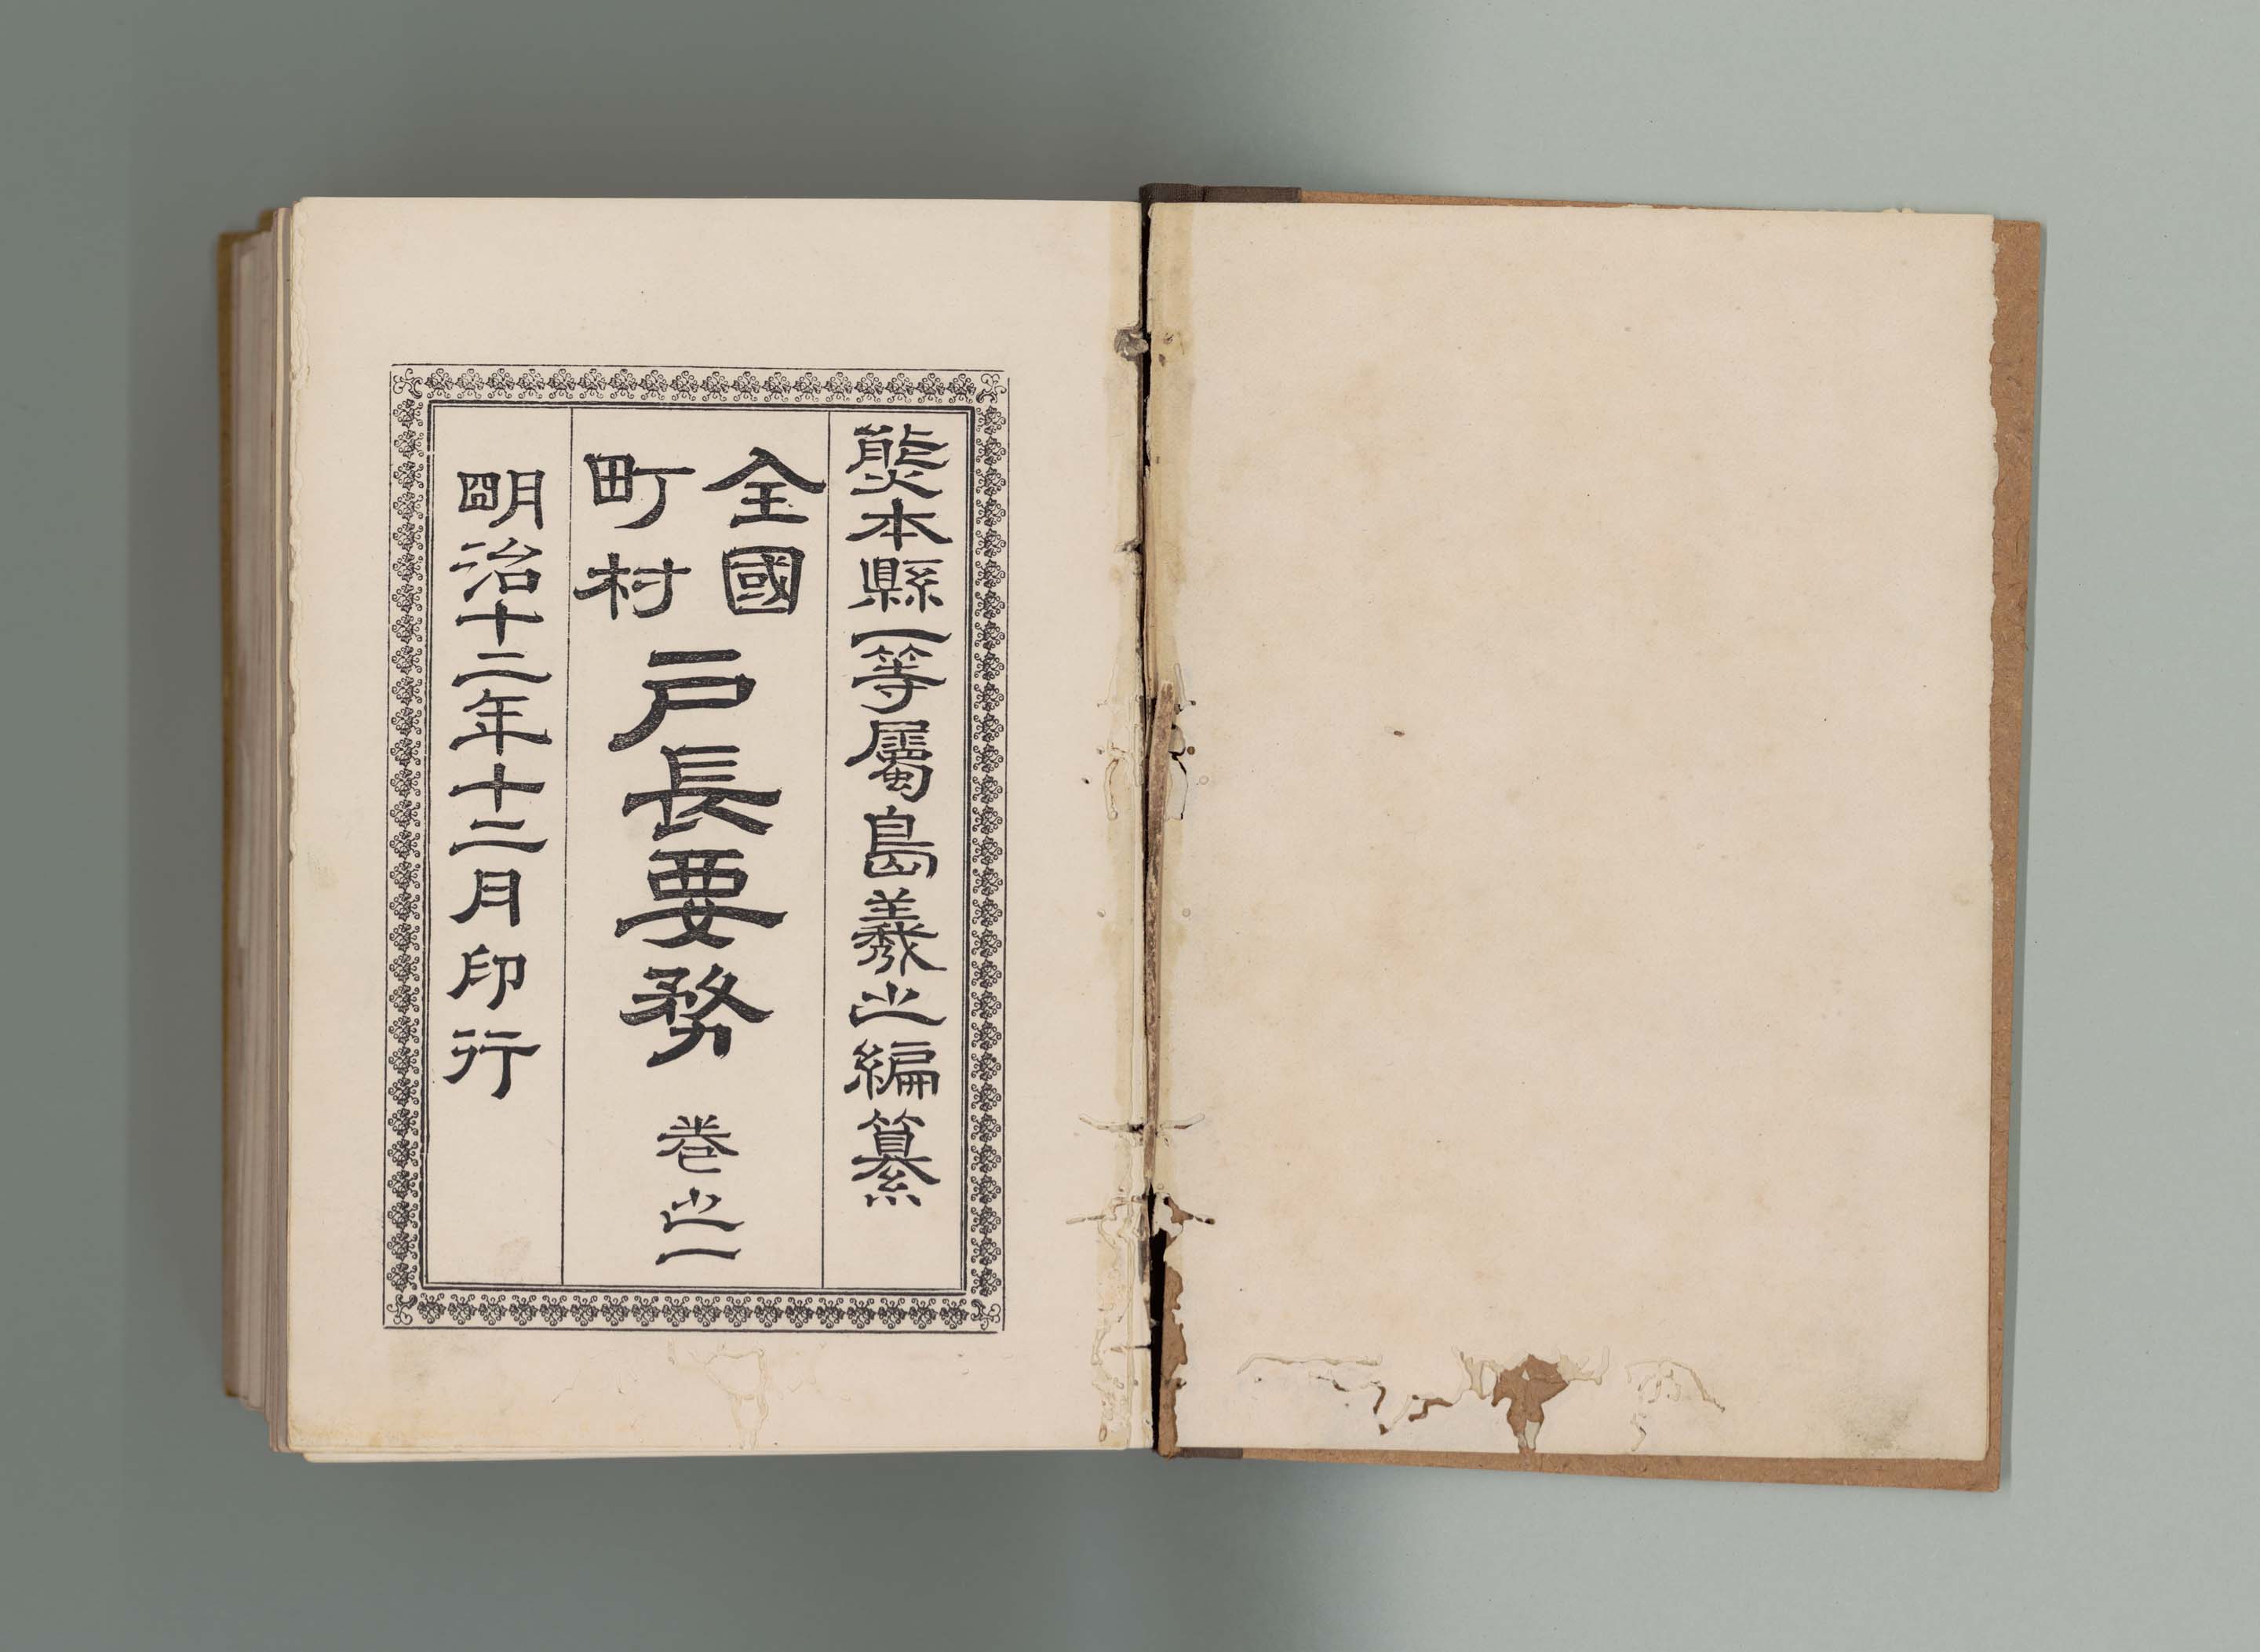 熊本縣一等屬島義之編纂
全國
町村
戸長要務 巻之一
明治十二年十二月印行